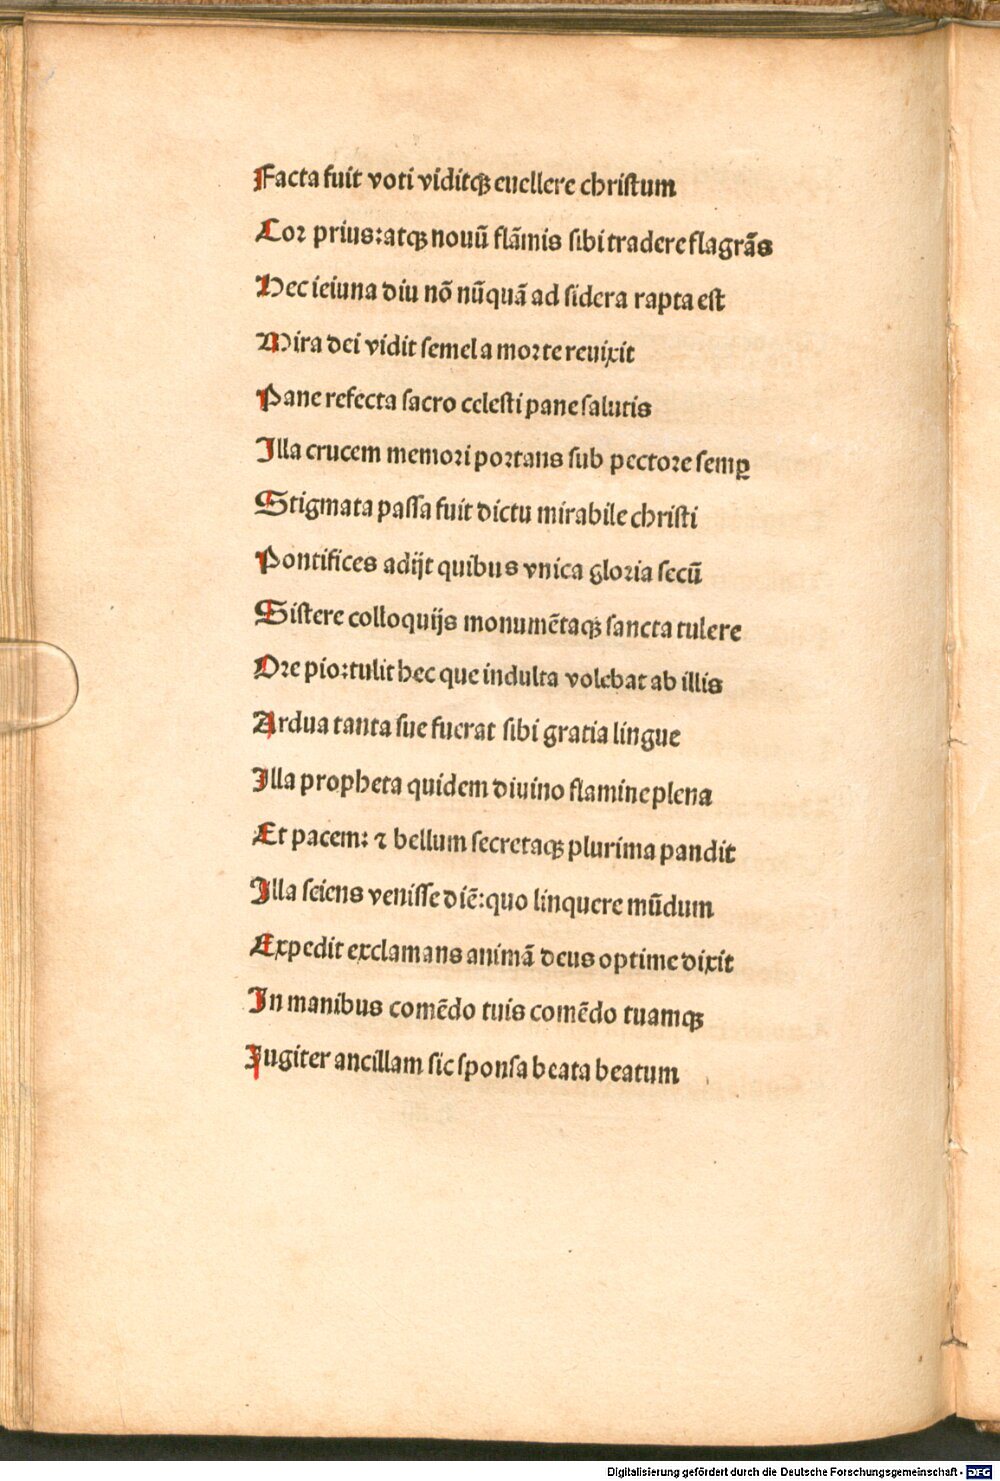 Facta fuit voti viditqꝫ euellere christum
Cor prius:atqꝫ nouū flāmis sibi tradere flagrās
Hec ieiuna diu nō nūquā ad sidera rapta est
Mira dei vidit semel a morte reuixit
Pane refecta sacro celesti pane salutis
Illa crucem memori portans sub pectore semꝑ
Stigmata passa fuit dictu mirabile christi
Pontifices adijt quibus vnica gloria secū
Sistere colloquijs monumētaqꝫ sancta tulere
Ore pio:tulit hec que indulta volebat ab illis
Ardua tanta sue fuerat sibi gratia lingue
Illa propheta quidem diuino flamine plena
Et pacem: ⁊ bellum secretaqꝫ plurima pandit
Illa sciens venisse diē:quo linquere mūdum
Expedit exclamans animā deus optime dixit
In manibus comēdo tuis comēdo tuamqꝫ
Iugiter ancillam sic sponsa beata beatum
Digitalisierung gefördert durch die Deutsche Forschungsgemeinschaft - DFG